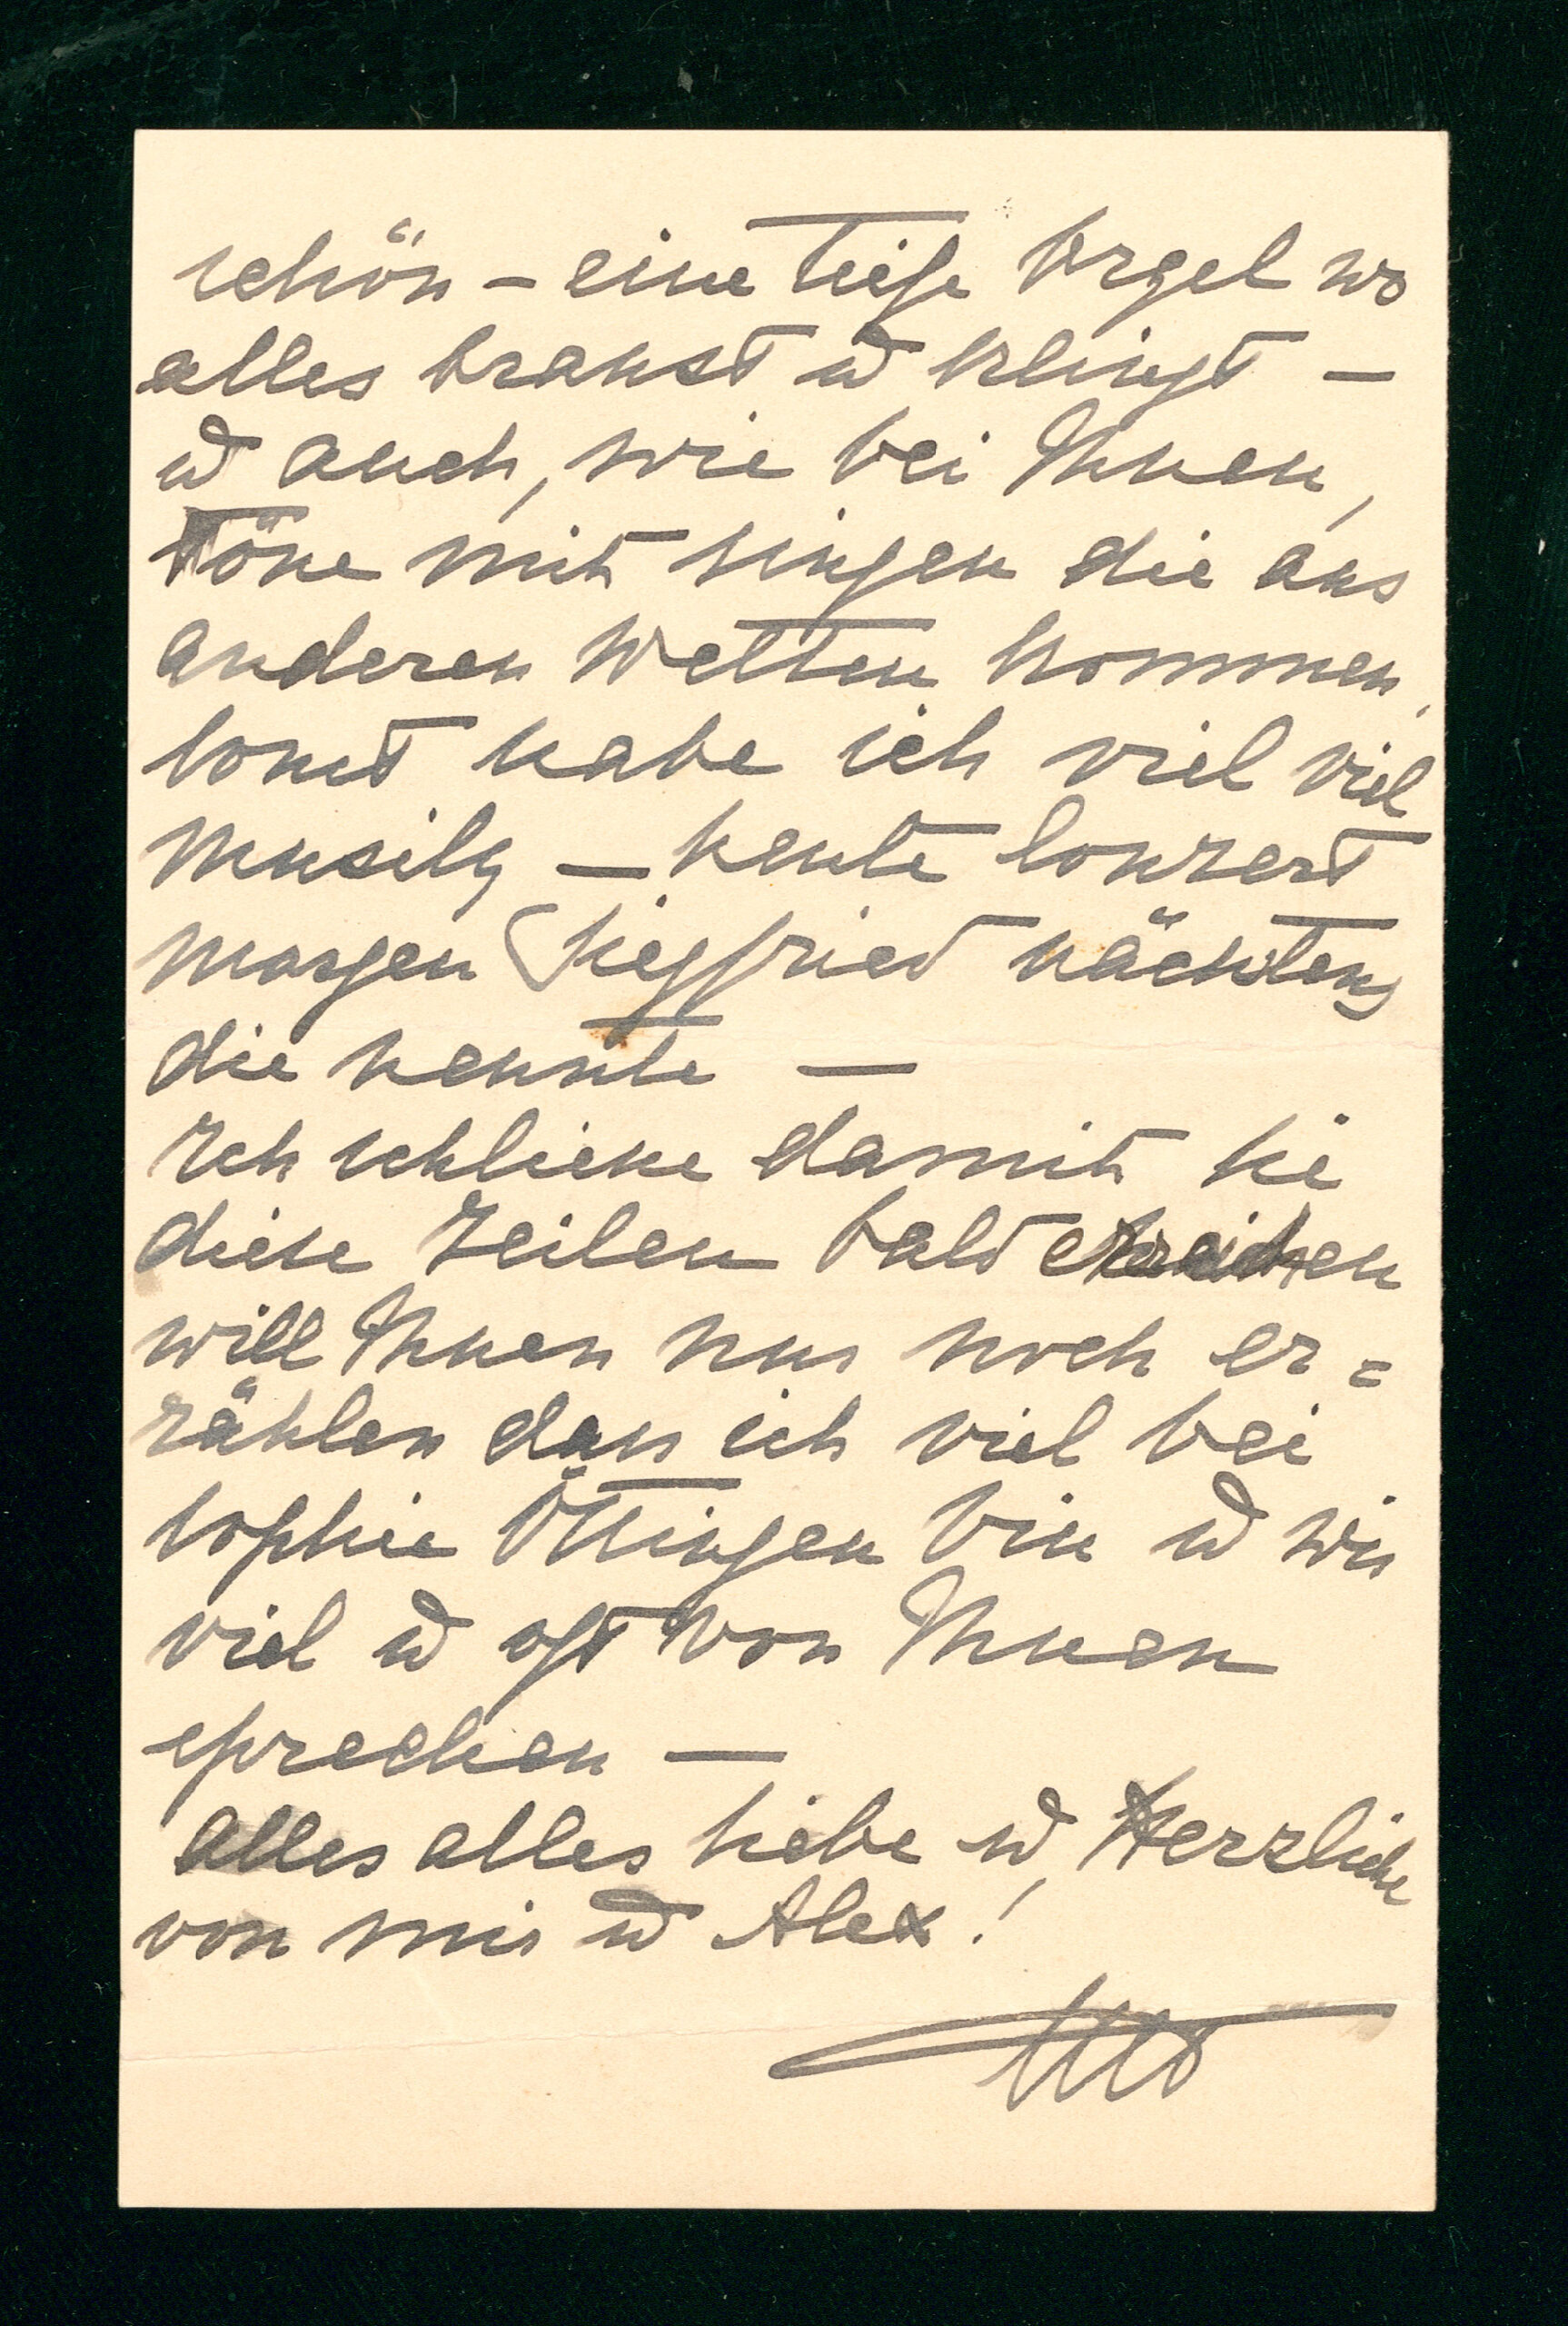 schön – eine tiefe Orgel wo
alles braust u klingt –
u auch, wie bei Ihnen,
Töne mit singen die aus
anderen Welten kommen,
sonst habe ich viel viel
Musik – heute Conzert
morgen Siegfried nächstens
die neunte –
Ich schliesse damit Sie
diese Zeilen bald erreichen
will Ihnen nur noch er=
zählen dass ich viel bei
Sophie Öttingen bin u wir
viel u oft von Ihnen
sprechen –
alles alles Liebe u Herzliche
von mir u Alex!